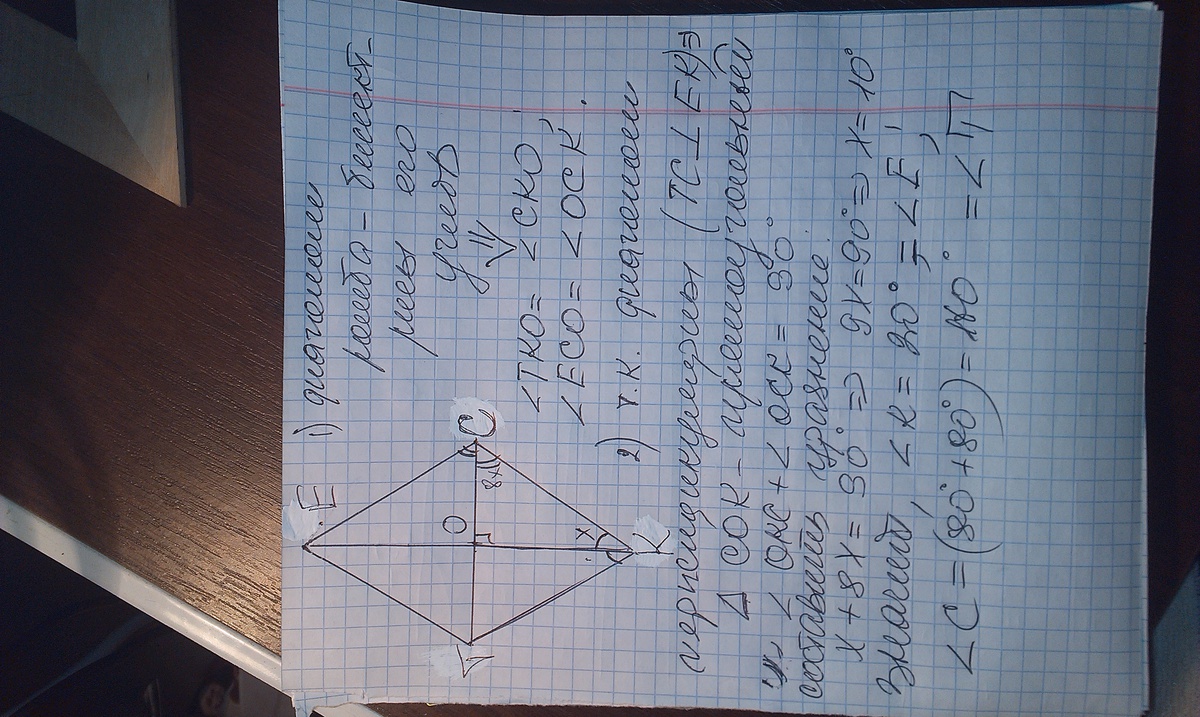 E
O
C
8x
T
x
K
1) диагонали
ромба – биссект-
рисы его
углов
⇓
∠TKO = ∠CKO,
∠ECO = ∠OCK.
2) т.к. диагонали
перпендикулярны (TC⊥EK)⇒
Δ COK – прямоугольный
⇒ ∠ OKC + ∠ OCK = 90°
составить уравнение:
x + 8x = 90° ⇒ 9x = 90° ⇒ x = 10°
Значит, ∠K = 20° = ∠E,
∠C = (80° + 80°) = 160° = ∠T